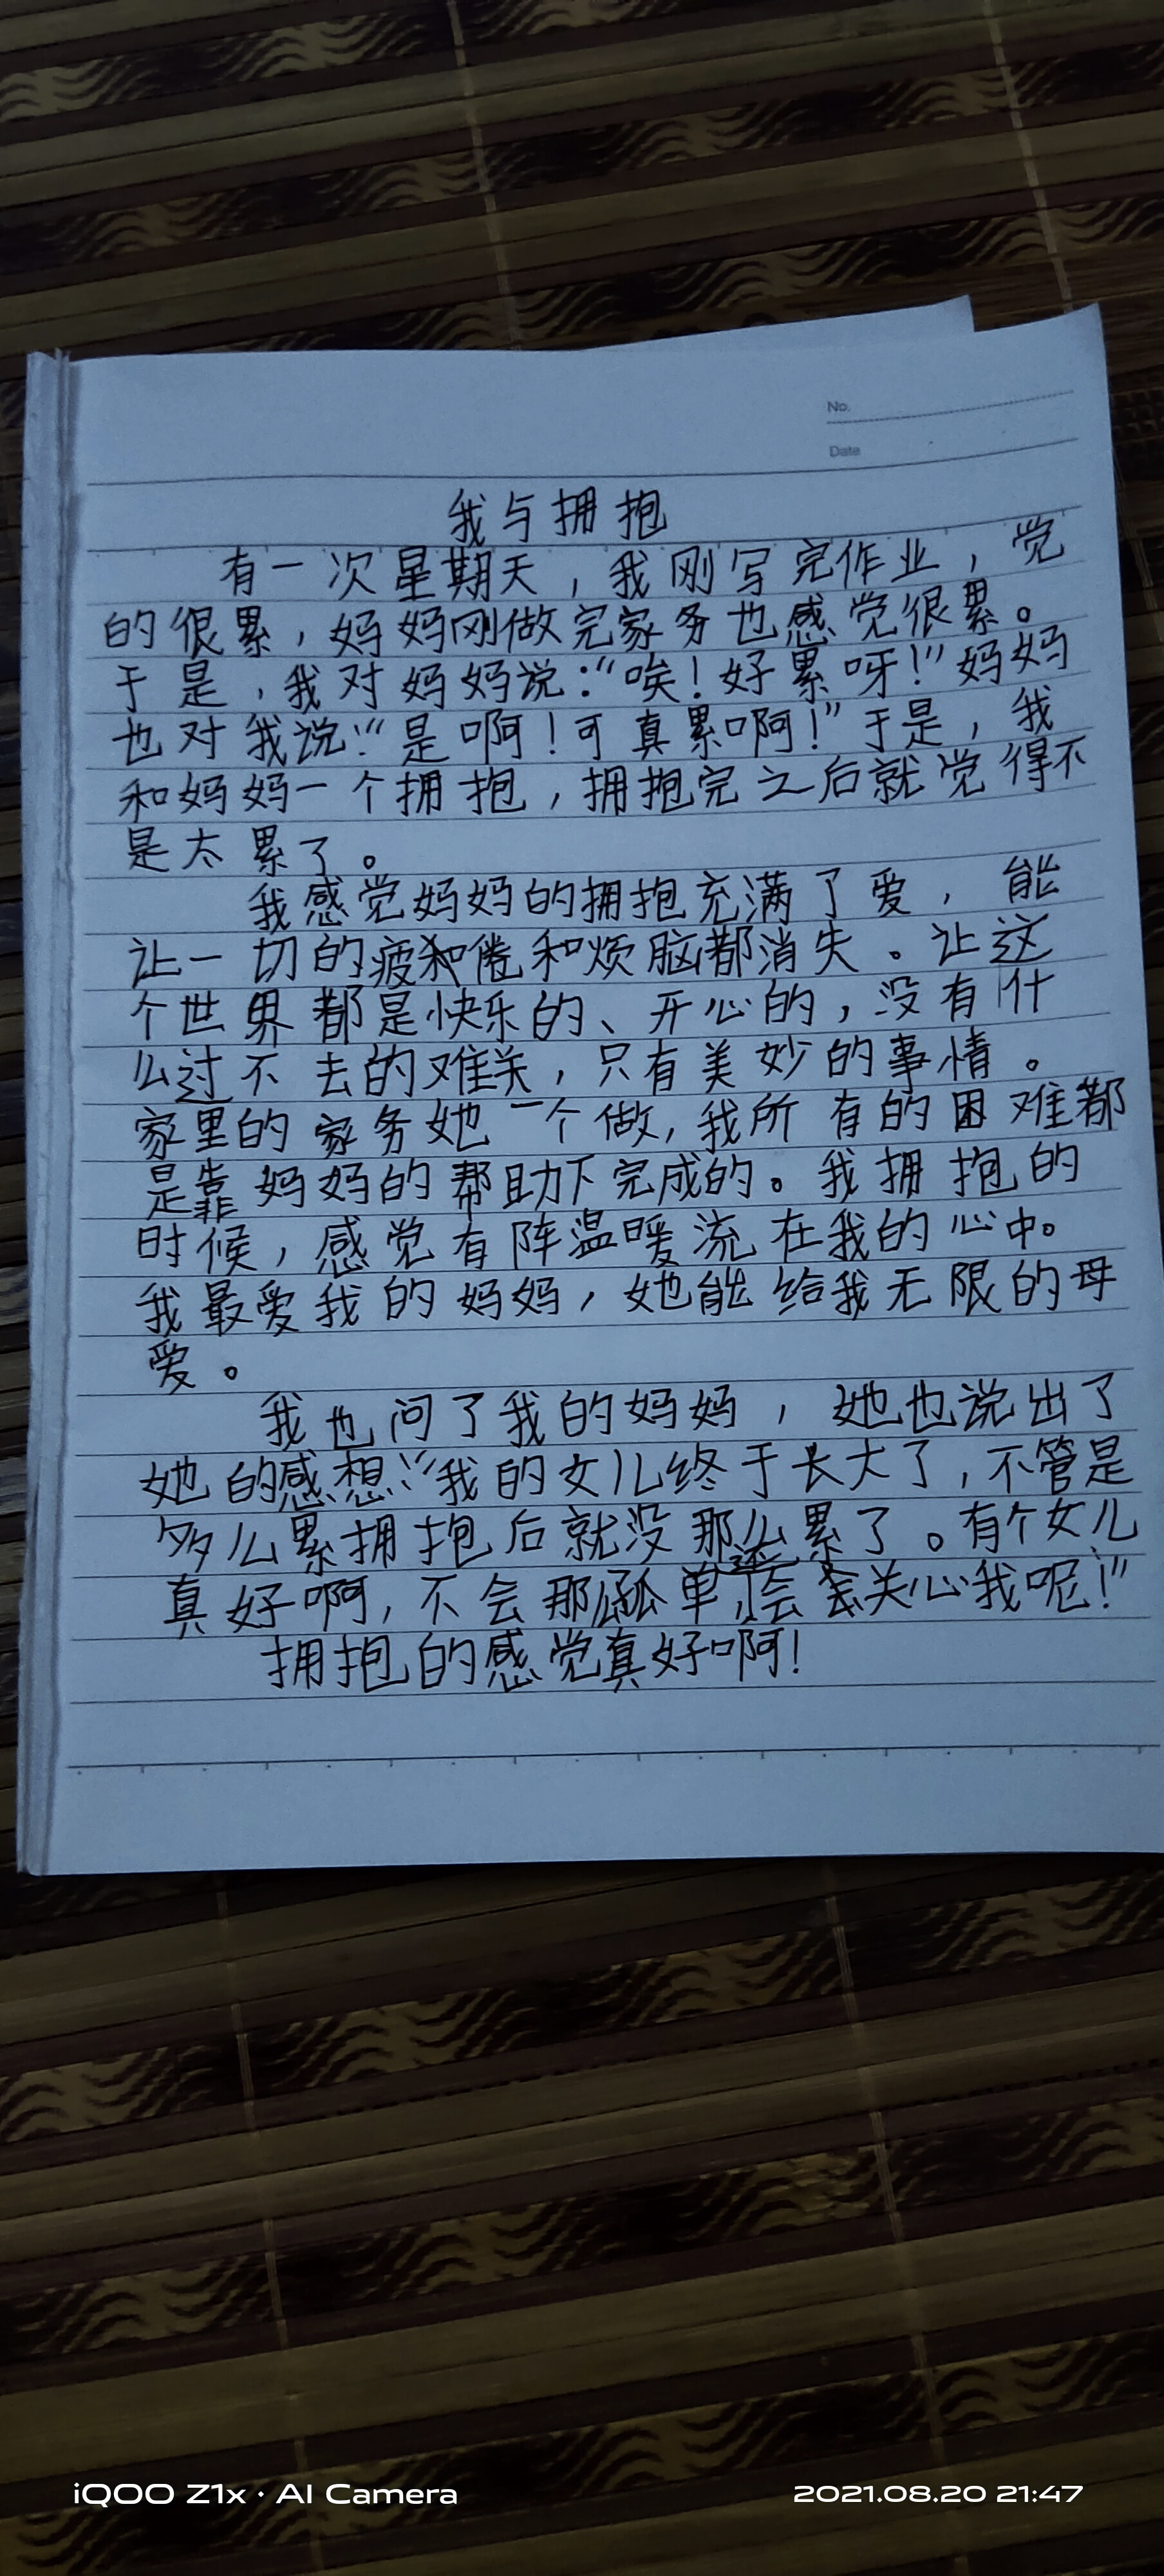 No.
Date
我与拥抱
有一次星期天，我刚写完作业，觉
的很累，妈妈刚做完家务也感觉很累。
于是，我对妈妈说：“唉！好累呀！”妈妈
也对我说：“是啊！可真累啊！”于是，我
和妈妈一个拥抱，拥抱完之后就觉得不
是太累了。
我感觉妈妈的拥抱充满了爱，能
让一切的疲倦和烦脑都消失。让这
个世界都是快乐的、开心的，没有什
么过不去的难关，只有美妙的事情。
家里的家务她一个做，我所有的困难都
是靠妈妈的帮助下完成的。我拥抱的
时候，感觉有阵温暖流在我的心中。
我最爱我的妈妈，她能给我无限的母
爱。
我也问了我的妈妈，她也说出了
她的感想：“我的女儿终于长大了，不管是
多么累拥抱后就没那么累了。有个女儿
真好啊，不会那么孤单，还会关心我呢！”
拥抱的感觉真好啊！
iQOO Z1x · AI Camera
2021.08.20 21:47